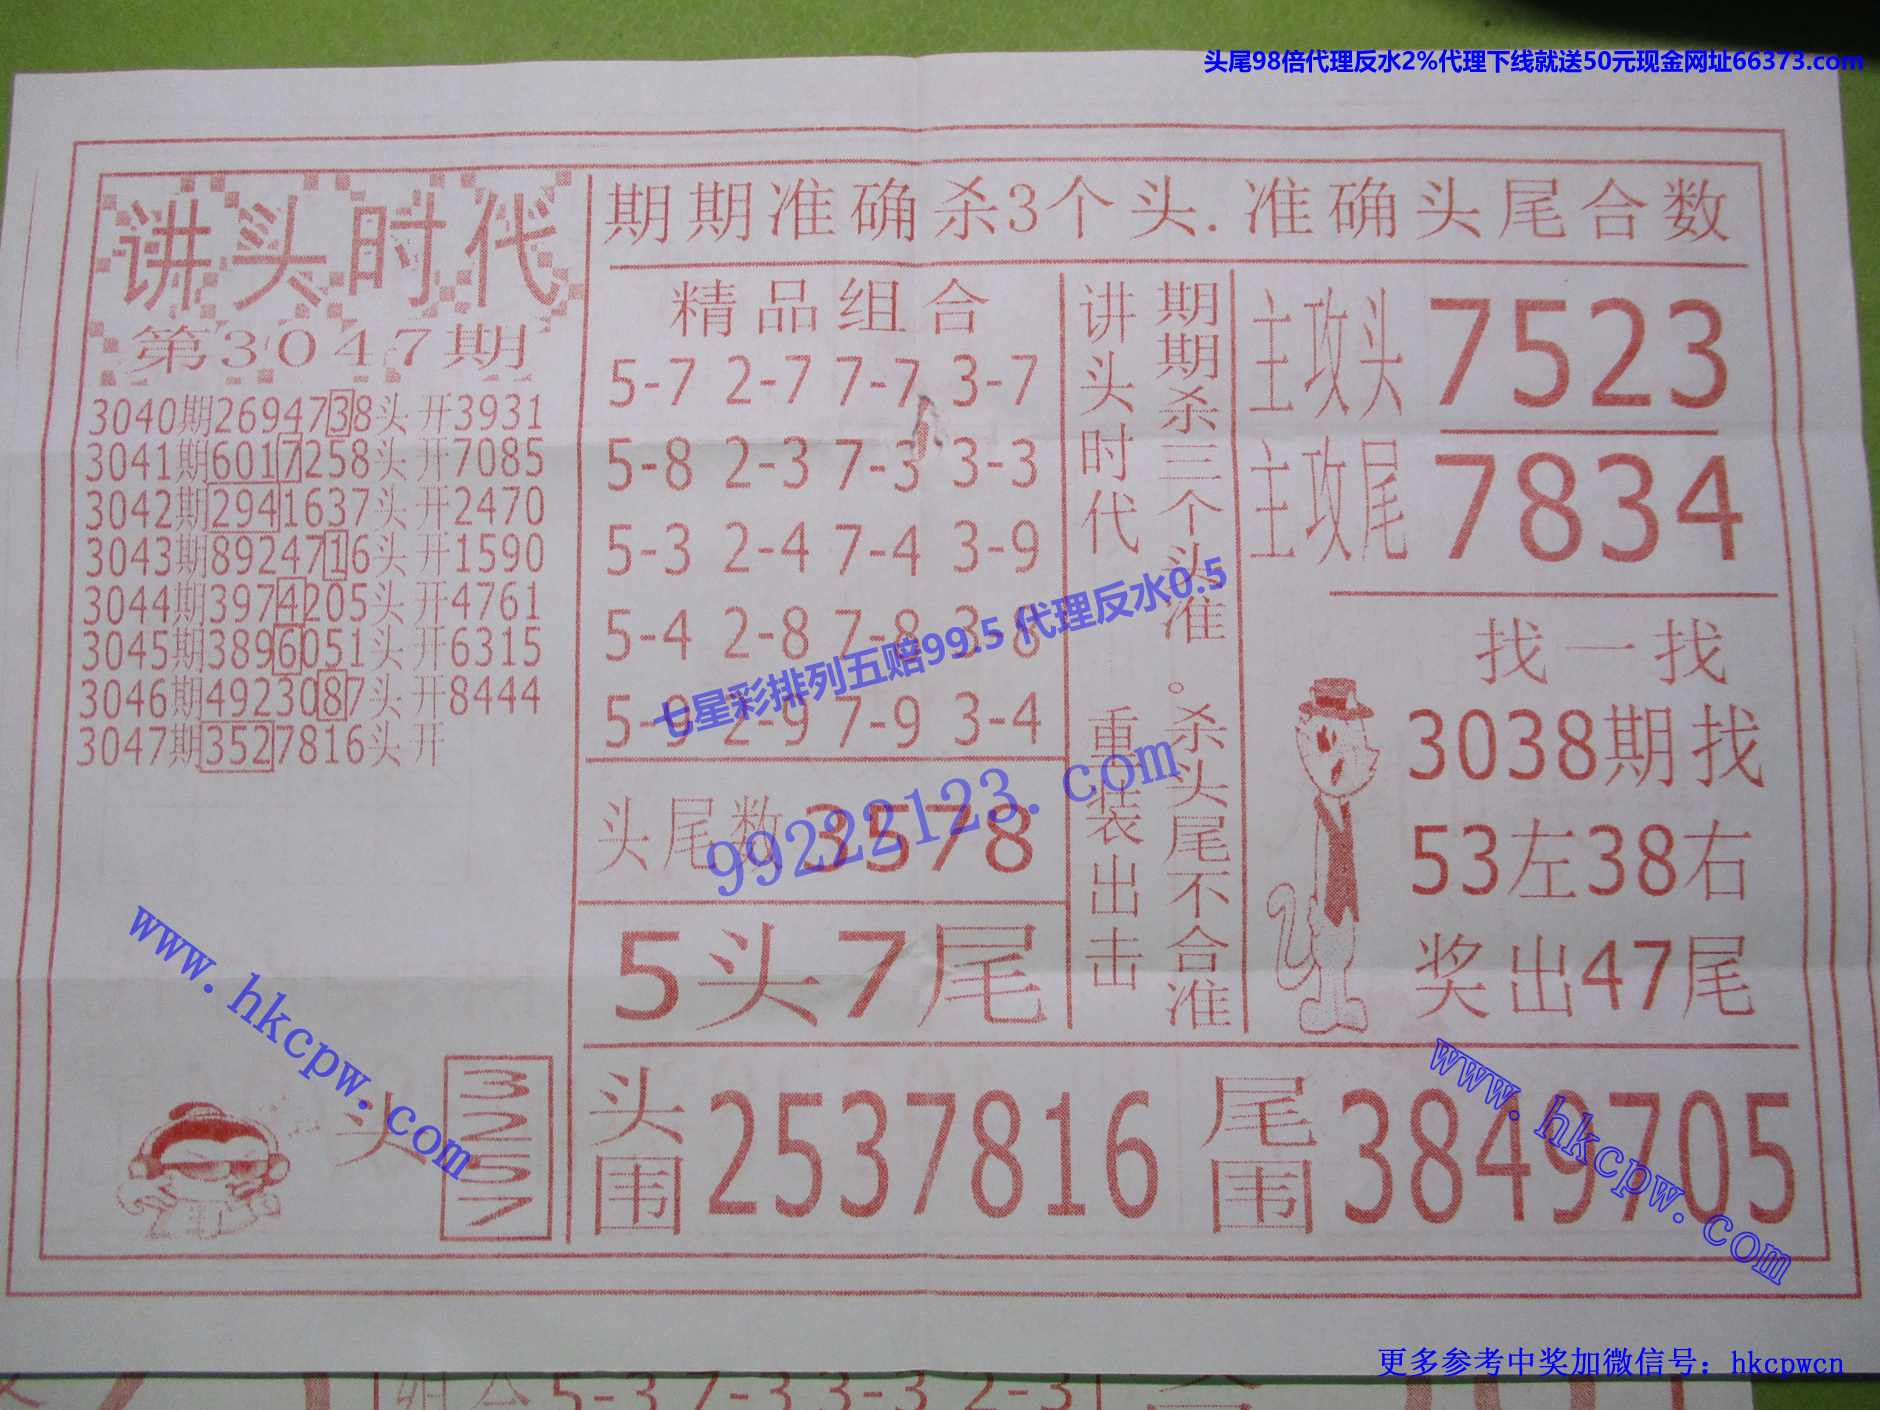 头尾98倍代理反水2%代理下线就送50元现金网址66373.com
讲头时代
第3047期
3040期2694738头 开3931
3041期6017258头 开7085
3042期2941637头 开2470
3043期8924716头 开1590
3044期3974205头 开4761
3045期3896051头 开6315
3046期4923087头 开8444
3047期3527816头 开
头
3257
期期准确杀3个头.准确头尾合数
精品组合
5-7 2-7 7-7 3-7
5-8 2-3 7-3 3-3
5-3 2-4 7-4 3-9
5-4 2-8 7-8 3-8
5-9 2-9 7-9 3-4
头尾数 3578
5头7尾
讲头时代 重装出击
期期杀三个头准。杀头尾不合准
主攻头 7523
主攻尾 7834
找一找
3038期找
53左38右
奖出47尾
头围 2537816 尾围 3849705
七星彩排列五赔99.5 代理反水0.5
99222123.com
www.hkcpw.com
www.hkcpw.com
5-3 7-3 3-3 2-3
更多参考中奖加微信号：hkcpwcn